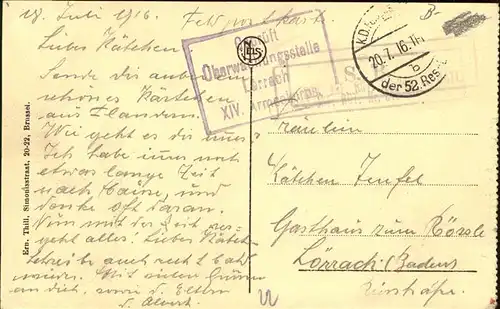 18. Juli 1916. Feldpostkarte
Liebes Kätchen
Sende dir anbei ein
schönes Kärtchen
aus Flandern.
Wie geht es dir immer?
Ich habe immer noch
etwas lange Zeit
nach Hause, und
denke oft daran.
Nun mit der Zeit ver-
geht alles! Liebes Kätchen
schreibe auch recht bald
wieder. Mit vielen Grüssen
an dich, sowie d. Eltern
d. Albert.
Ern. Thill, Simonisstraat, 20-22, Brussel.
Geprüft
Oberwachungsstelle
Lörrach
XIV. Armeekorps
K.D. Feldpost
20.7.16. 11-
b
der 52. Res.
B-
Fräulein
Kätchen Teufel
Gasthaus zum Rössle
Lörrach (Baden)